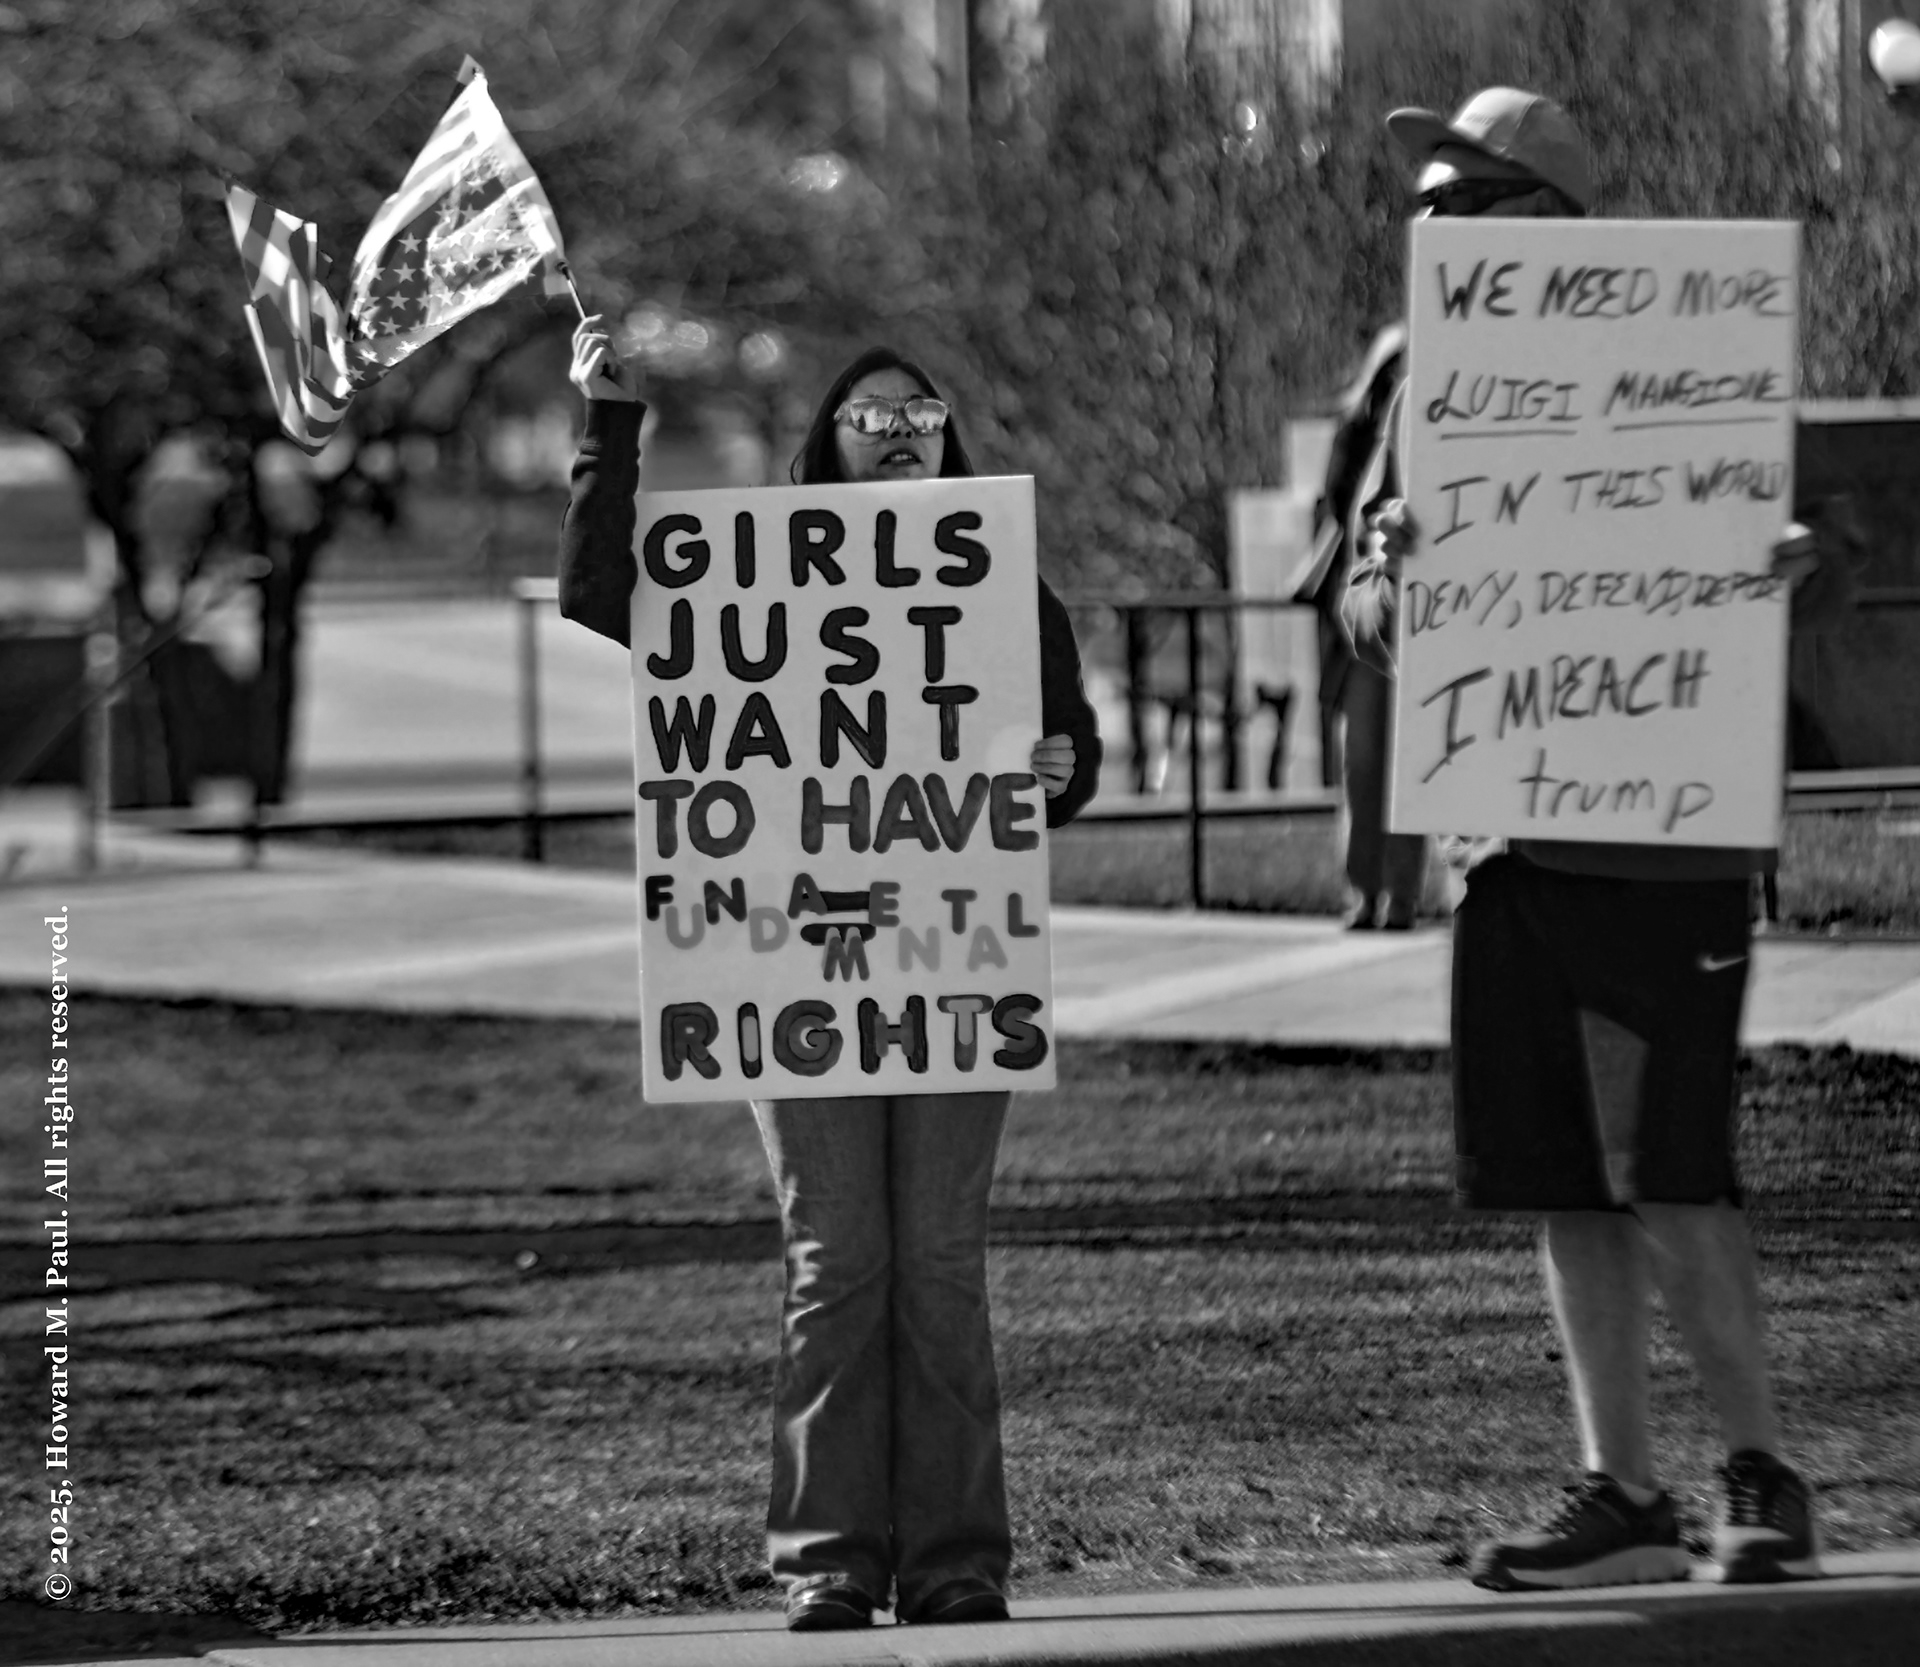 GIRLS
JUST
WANT
TO HAVE
FUNDAMENTAL
RIGHTS
WE NEED MORE
LUIGI MANGIONE
IN THIS WORLD
DENY, DEFEND, DEPOSE
IMPEACH
trump
© 2025, Howard M. Paul. All rights reserved.